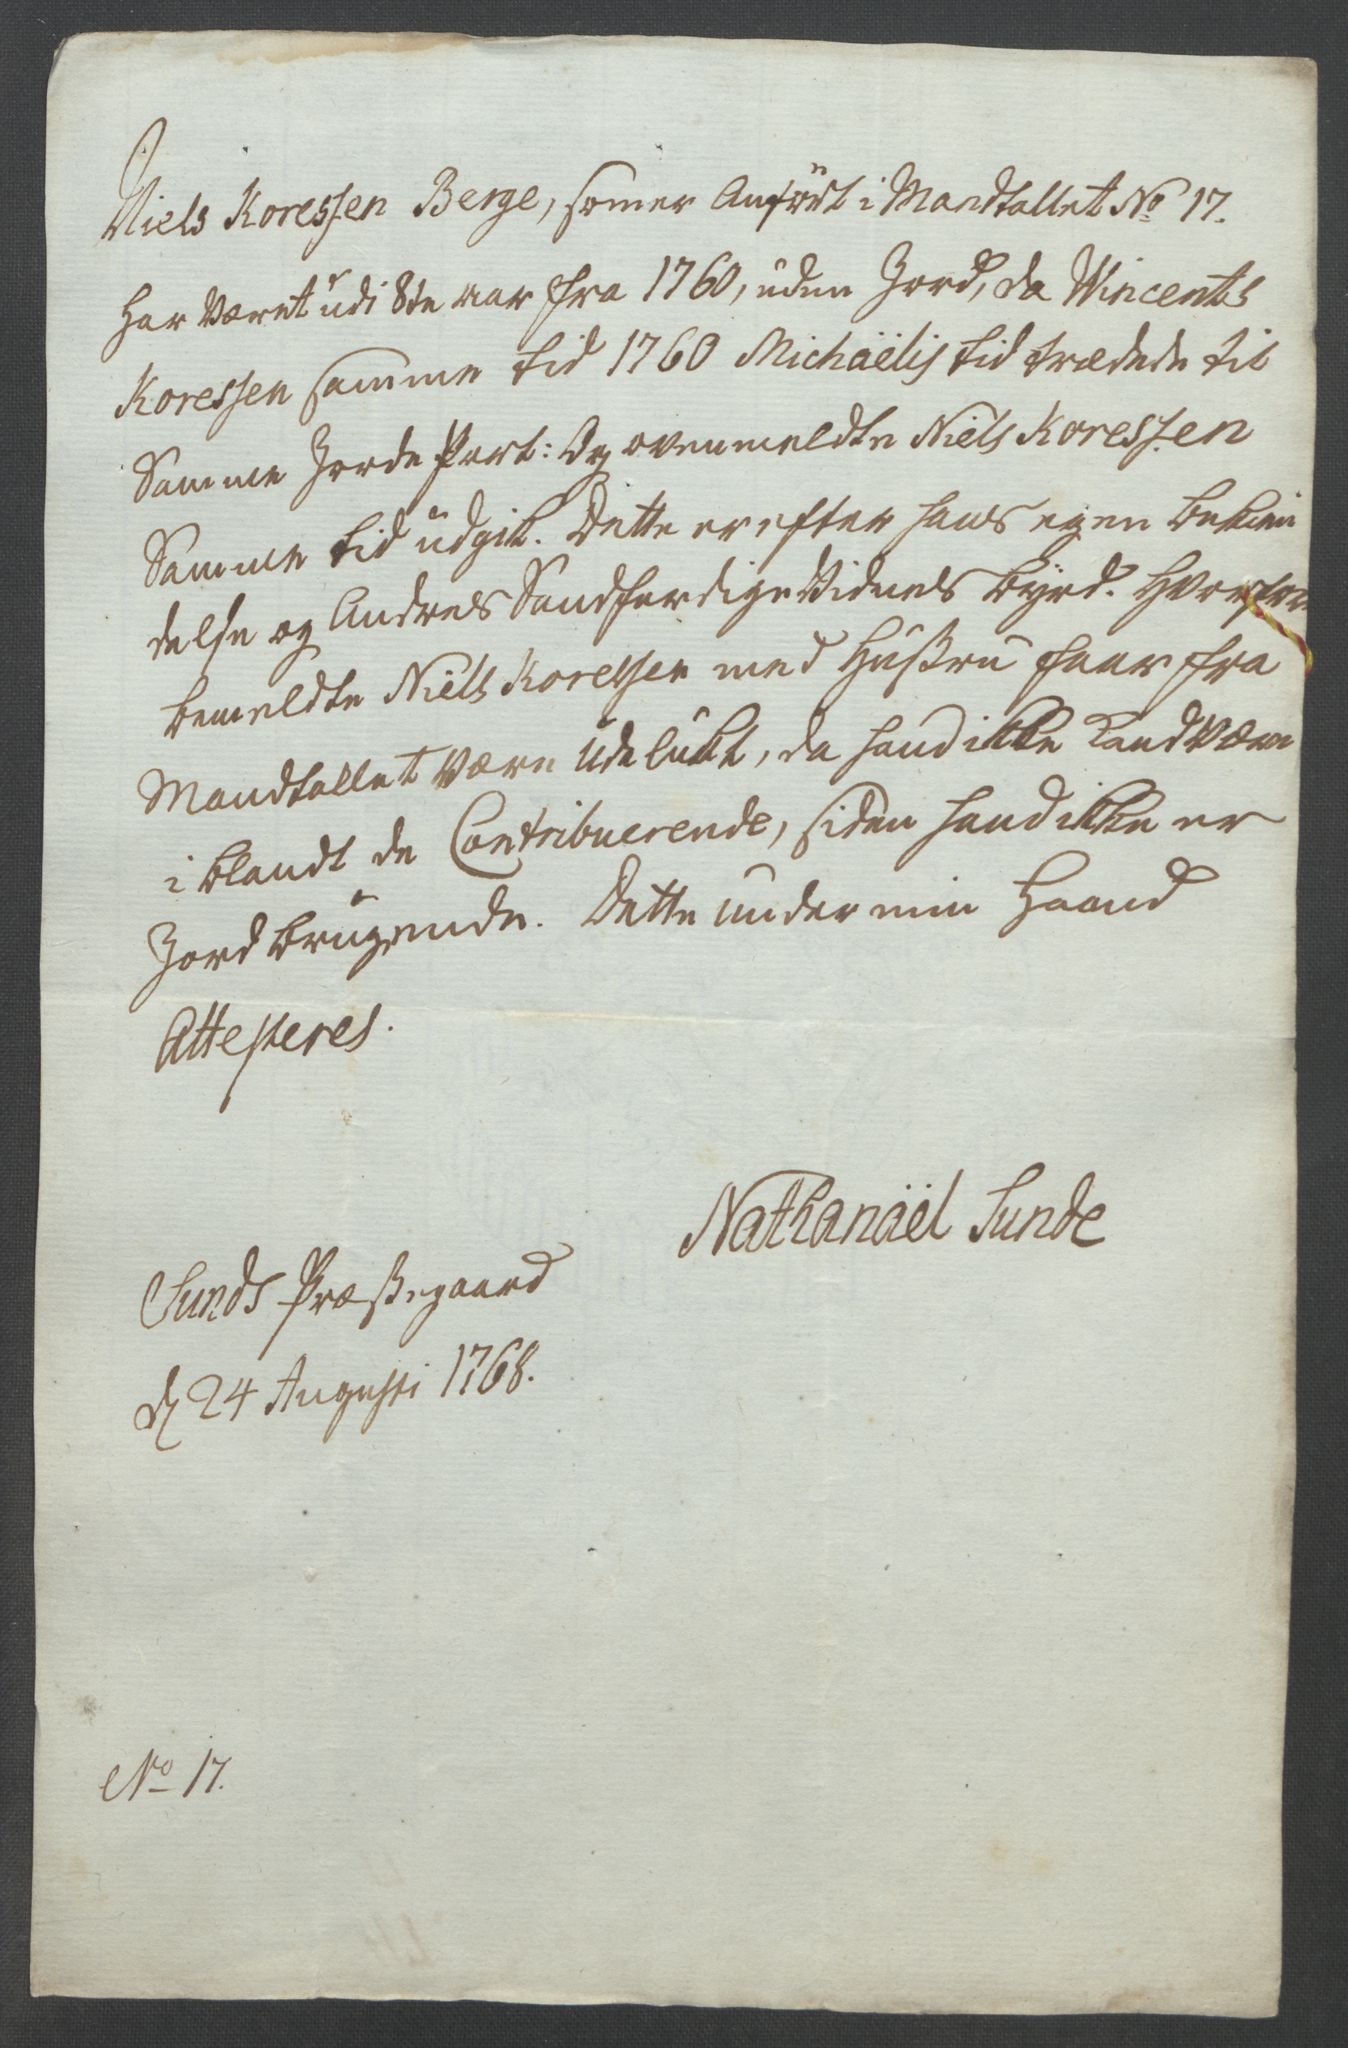 Niels Koressen Berge, somer Anført i Mandtallet No 17.
har været udi 8te aar fra 1760, uden Jord, da Wincents
Koressen samme tid 1760 Michaëlis tid trædede til
Samme Jorde Part: Og ovenmeldte Niels Koressen
Samme tid udgik. Dette er efter hans egen bekien
delse og Andres Sandferdige Vidnes byrd. Hvorfor
bemeldte Niels Koressen med Hustru faar fra
Mandtallet være Udelukt, da hand ikke kand være
iblandt de Contribuerende, siden hand ikke er
Jord brugende. Dette under min Haand
Attesteres.
Nathanaël Sunde
Sunds Præstegaard
d 24 Augusti 1768.
No 17.